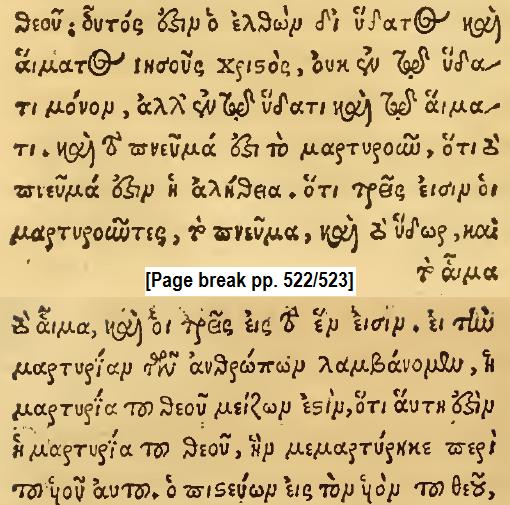 θεοῦ: οὗτός ἐστιν ὁ ἐλθὼν δι ὕδατος καὶ
ἅιματος ἰησοῦς χριστὸς, ουκ ἐν τῷ ὕδα
τι μόνον, ἀλλ' ἐν τῷ ὕδατι καὶ τῷ ἅιμα
τι. καὶ τὸ πνεῦμά ἐστι τὸ μαρτυροῦν, ὅτι τὸ
πνεῦμά ἐστιν ἡ ἀλήθεια. ὅτι τρεῖς εισιν ὁι
μαρτυροῦντες, τὸ πνεῦμα, καὶ τὸ ὕδωρ, καὶ
τὸ ἇιμα
[Page break pp. 522/523]
τὸ ἇιμα, καὶ ὁι τρεῖς εις τὸ ἕν εἰσιν. ει τὴν
μαρτυρίαν τῶν ἀνθρώπων λαμβάνομεν, ἡ
μαρτυρία τοῦ θεοῦ μείζων ἐστὶν, ὅτι ἅυτη ἐστὶν
ἡ μαρτυρία τοῦ θεοῦ, ἣν μεμαρτύρηκε περὶ
τοῦ υἱοῦ ἀυτοῦ. ὁ πιστεύων εις τὸν υἱὸν τοῦ θεοῦ,